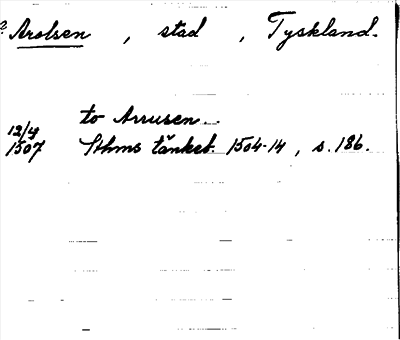 ? Arolsen, stad, Tyskland.
to Arrusen..
12/4
1507 Sthms tänkeb. 1504-14, s. 186.